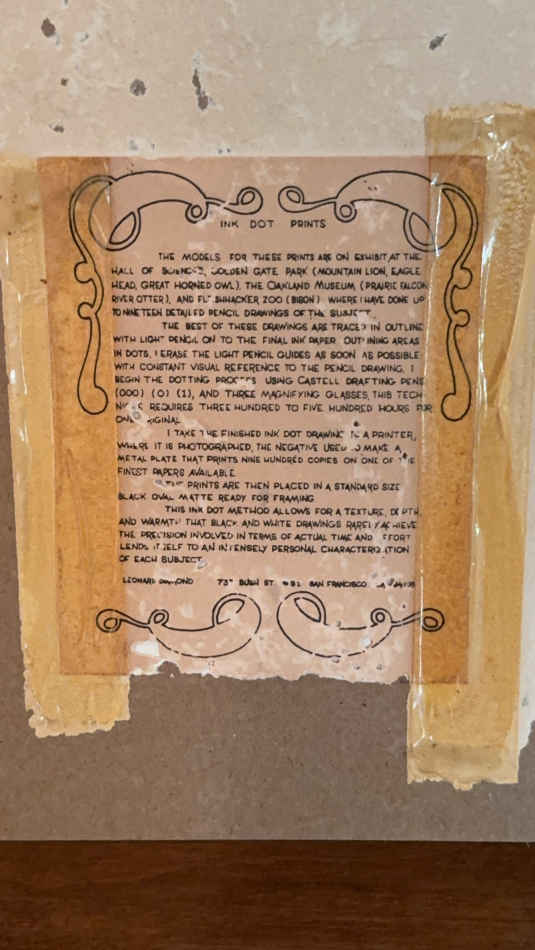 INK DOT PRINTS
THE MODELS FOR THESE PRINTS ARE ON EXHIBIT AT THE
HALL OF SCIENCES, GOLDEN GATE PARK (MOUNTAIN LION, EAGLE
HEAD, GREAT HORNED OWL), THE OAKLAND MUSEUM (PRAIRIE FALCON
RIVER OTTER), AND FLEISHHACKER ZOO (BISON) WHERE I HAVE DONE UP
TO NINETEEN DETAILED PENCIL DRAWINGS OF THE SUBJECT.
THE BEST OF THESE DRAWINGS ARE TRACED IN OUTLINE
WITH LIGHT PENCIL ON TO THE FINAL INK PAPER. OUTLINING AREAS
IN DOTS, I ERASE THE LIGHT PENCIL GUIDES AS SOON AS POSSIBLE
WITH CONSTANT VISUAL REFERENCE TO THE PENCIL DRAWING, I
BEGIN THE DOTTING PROCESS USING CASTELL DRAFTING PENS
(000) (0) (1), AND THREE MAGNIFYING GLASSES, THIS TECH-
NIQUE REQUIRES THREE HUNDRED TO FIVE HUNDRED HOURS FOR
ONE ORIGINAL.
I TAKE THE FINISHED INK DOT DRAWING TO A PRINTER,
WHERE IT IS PHOTOGRAPHED, THE NEGATIVE USED TO MAKE A
METAL PLATE THAT PRINTS NINE HUNDRED COPIES ON ONE OF THE
FINEST PAPERS AVAILABLE.
THE PRINTS ARE THEN PLACED IN A STANDARD SIZE
BLACK OVAL MATTE READY FOR FRAMING
THIS INK DOT METHOD ALLOWS FOR A TEXTURE, DEPTH,
AND WARMTH THAT BLACK AND WHITE DRAWINGS RARELY ACHIEVE
THE PRECISION INVOLVED IN TERMS OF ACTUAL TIME AND EFFORT
LENDS ITSELF TO AN INTENSELY PERSONAL CHARACTERIZATION
OF EACH SUBJECT.
LEONARD BUSH ST. SAN FRANCISCO